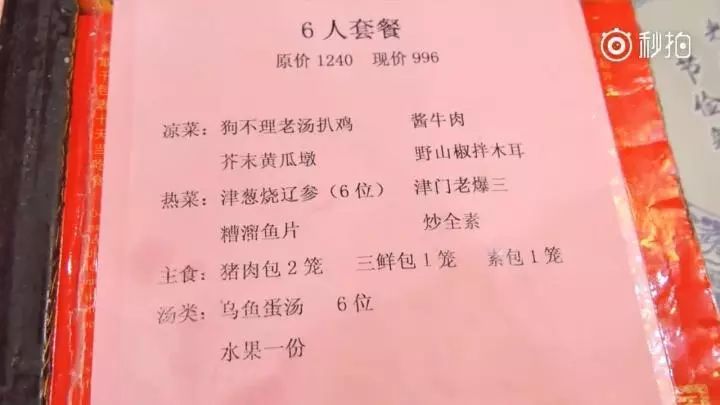 6人套餐
原价1240 现价996
秒拍
凉菜：狗不理老汤扒鸡 酱牛肉
芥末黄瓜墩 野山椒拌木耳
热菜：津葱烧辽参（6位） 津门老爆三
糟溜鱼片 炒全素
主食：猪肉包2笼 三鲜包1笼 素包1笼
汤类：乌鱼蛋汤 6位
水果一份